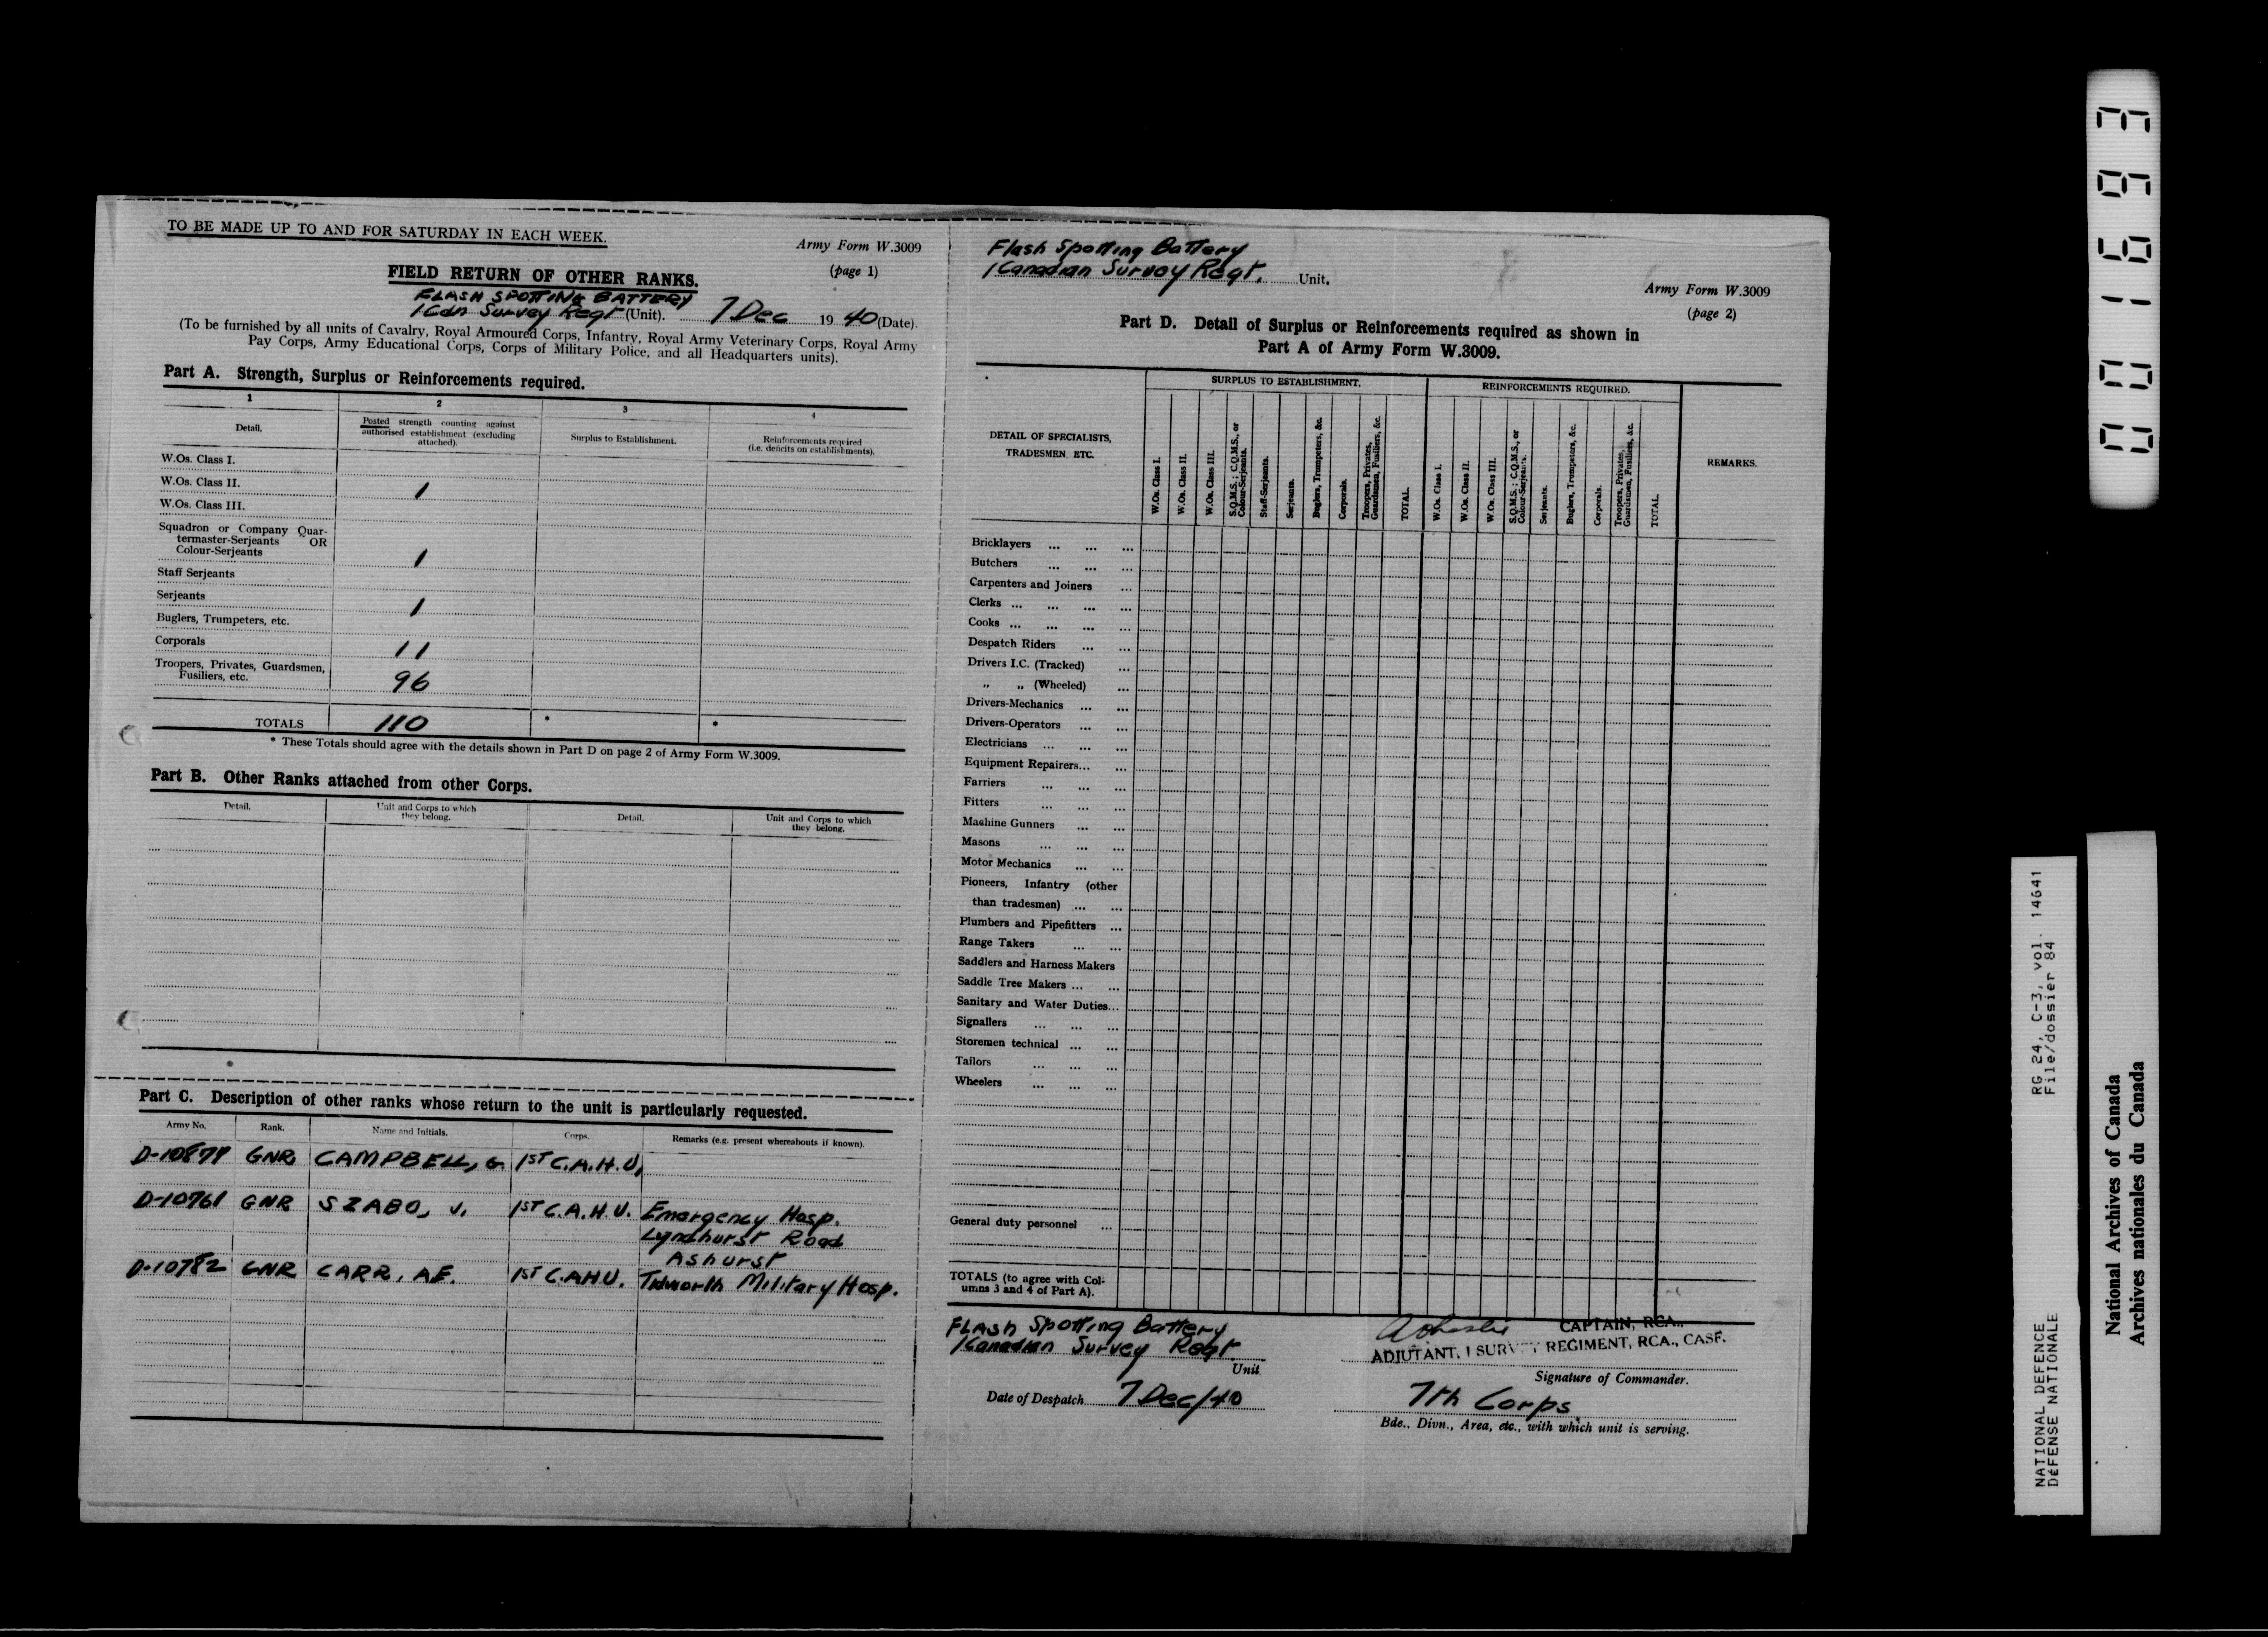 TO BE MADE UP TO AND FOR SATURDAY IN EACH WEEK.
Army Form W.3009
(page 1)
FIELD RETURN OF OTHER RANKS.
FLASH SPOTTING BATTERY
1 Cdn Survey Regt (Unit). 7 Dec 19 40 (Date).
(To be furnished by all units of Cavalry, Royal Armoured Corps, Infantry, Royal Army Veterinary Corps, Royal Army
Pay Corps, Army Educational Corps, Corps of Military Police, and all Headquarters units).
Part A. Strength, Surplus or Reinforcements required.
1 2 3 4
Detail.
Posted strength counting against
authorised establishment (excluding
attached).
Surplus to Establishment.
Reinforcements required
(i.e. deficits on establishments).
W.Os. Class I.
W.Os. Class II. 1
W.Os. Class III.
Squadron or Company Quar-
termaster-Serjeants OR
Colour-Serjeants 1
Staff Serjeants
Serjeants 1
Buglers, Trumpeters, etc.
Corporals 11
Troopers, Privates, Guardsmen,
Fusiliers, etc. 96
TOTALS 110 * *
* These Totals should agree with the details shown in Part D on page 2 of Army Form W.3009.
Part B. Other Ranks attached from other Corps.
Detail.
Unit and Corps to which
they belong.
Detail.
Unit and Corps to which
they belong.
Part C. Description of other ranks whose return to the unit is particularly requested.
Army No. Rank. Name and Initials. Corps. Remarks (e.g. present whereabouts if known).
GNR CAMPBELL, G 1ST C.A.H.U.
D-10761 GNR SZABO, J. 1ST C.A.H.U. Emergency Hosp.
Lyndhurst Road
Ashurst
D-10782 GNR CARR, A.E. 1ST C.A.H.U. Tidworth Military Hosp.
Flash Spotting Battery
1 Canadian Survey Regt. Unit.
Army Form W.3009
(page 2)
Part D. Detail of Surplus or Reinforcements required as shown in
Part A of Army Form W.3009.
DETAIL OF SPECIALISTS,
TRADESMEN, ETC.
SURPLUS TO ESTABLISHMENT.
W.Os. Class I.
W.Os. Class II.
W.Os. Class III.
S.Q.M.S.; C.Q.M.S., or
Colour-Serjeants.
Staff-Serjeants.
Serjeants.
Buglers, Trumpeters, &c.
Corporals.
Troopers, Privates,
Guardsmen, Fusiliers, &c.
TOTAL.
REINFORCEMENTS REQUIRED.
W.Os. Class I.
W.Os. Class II.
W.Os. Class III.
S.Q.M.S.; C.Q.M.S., or
Colour-Serjeants.
Serjeants.
Buglers, Trumpeters, &c.
Corporals.
Troopers, Privates,
Guardsmen, Fusiliers, &c.
TOTAL.
REMARKS.
Bricklayers ... ... ...
Butchers ... ... ...
Carpenters and Joiners ...
Clerks ... ... ... ...
Cooks ... ... ... ...
Despatch Riders ... ...
Drivers I.C. (Tracked) ...
„ „ (Wheeled) ...
Drivers-Mechanics ... ...
Drivers-Operators ... ...
Electricians ... ... ...
Equipment Repairers... ...
Farriers ... ... ...
Fitters ... ... ...
Machine Gunners ... ...
Masons ... ... ...
Motor Mechanics ... ...
Pioneers, Infantry (other
than tradesmen) ... ...
Plumbers and Pipefitters ...
Range Takers ... ...
Saddlers and Harness Makers
Saddle Tree Makers ... ...
Sanitary and Water Duties...
Signallers ... ... ...
Storemen technical ... ...
Tailors ... ... ...
Wheelers ... ... ...
General duty personnel ...
TOTALS (to agree with Col-
umns 3 and 4 of Part A).
Flash Spotting Battery
1 Canadian Survey Regt.
Unit
Date of Despatch 7 Dec/40
CAPTAIN, RCA.,
ADJUTANT, 1 SURVEY REGIMENT, RCA., CASF.
Signature of Commander.
7th Corps
Bde., Divn., Area, etc., with which unit is serving.
RG 24, C-3, vol. 14641
File/dossier 84
NATIONAL DEFENCE
DÉFENSE NATIONALE
National Archives of Canada
Archives nationales du Canada